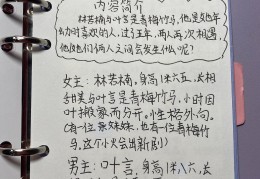 内容简介
林若楠与叶言是青梅竹马,他是她年
幼时喜欢的人,过了5年,两人再次相遇
他们俩人之间会发生什么呢?
女主:林若楠,身高1米六五,长相
甜美与叶言是青梅竹马,小时因
叶搬家而分开。小生格外向。
(有一位亲妹妹,也有一位青梅竹
马,这个小火会出新剧)
男主:叶言,身高1米八六,长